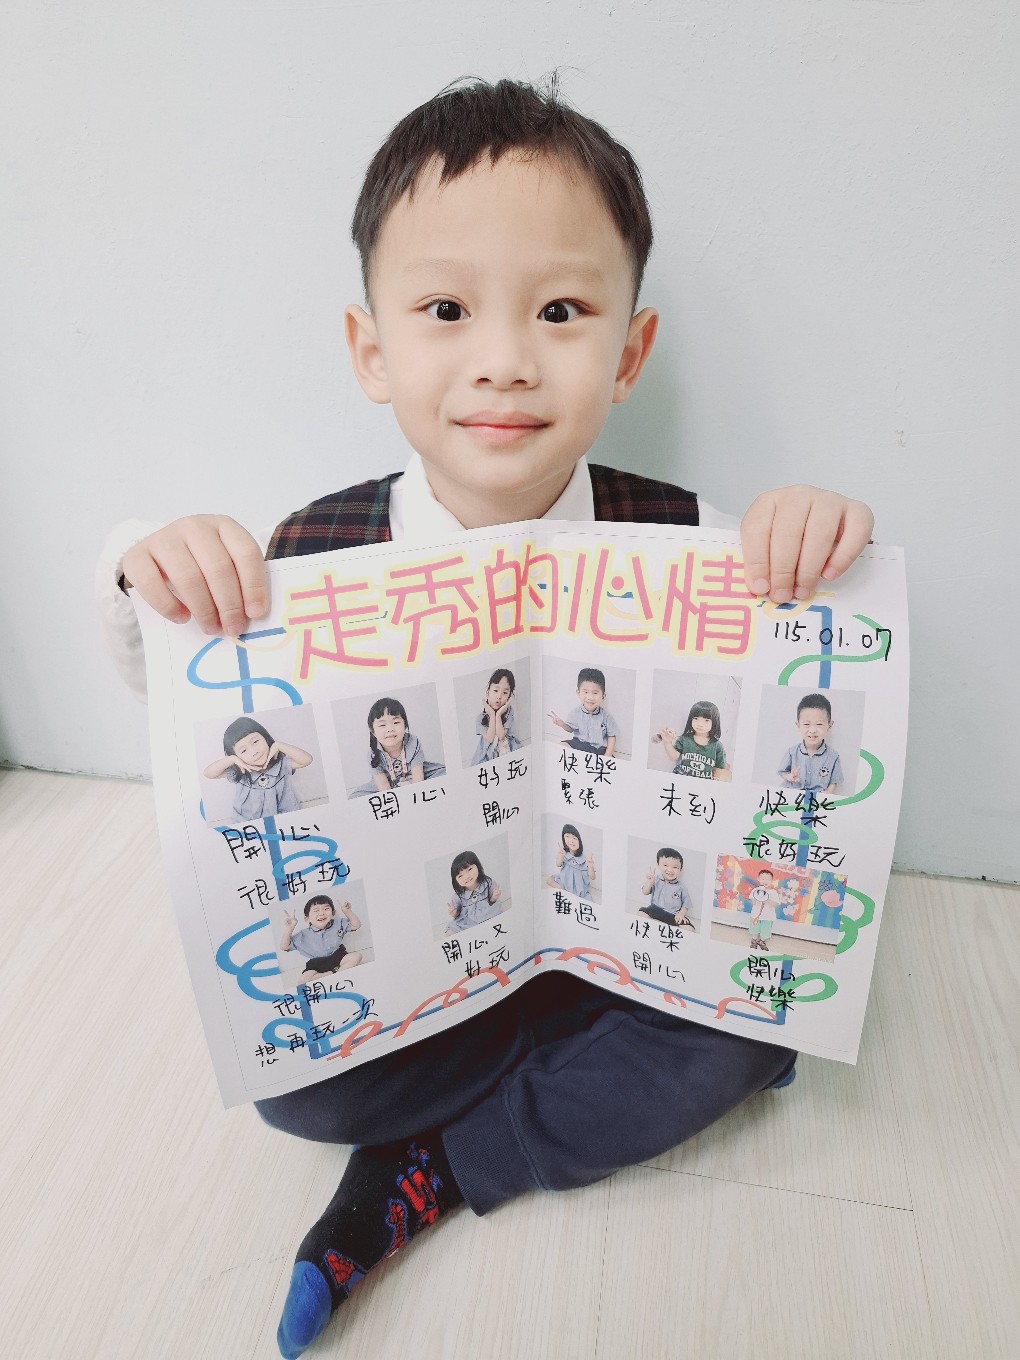 走秀的心情
115.01.07
開心
很好玩
開心
好玩
開心
快樂
緊張
MICHIGAN
SOFTBALL
未到
快樂
很好玩
很開心
想再玩一次
開心又
好玩
難過
快樂
開心
開心
快樂